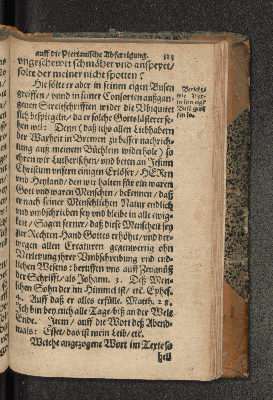 auff die Pierianische Abfertigung. 123
vngeschewet schmähet vnd anspeyet/
solte der meiner nicht spotten?
Hie solte er aber in seinen eigen Busen
greiffen / vnnd in seiner Consorten außgan-
genen Streitschrifften wider die Ubiquitet
sich bespiegeln / da er solche Gotteslästerer se-
hen will: Denn (daß ichs allen Liebhabern
der Warheit in Bremen zu besser nachrich-
tung auß meinem Büchlein widerhole) so
ehren wir Lutherischen / vnd beten an Jesum
Christum vnsern einigen Erlöser / HERrn
vnd Heyland / den wir halten für ein waren
Gott vnd waren Menschen / bekennen / daß
er nach seiner Menschlichen Natur endlich
vnd vmbschrieben sey vnd bleibe in alle ewig-
keit / Sagen ferner / daß diese Menschheit zu
der Rechten Hand Gottes erhöhet / vnd der-
wegen allen Creaturen gegenwertig ohn
Verletzung ihrer Vmbschreibung vnd end-
lichen Wesens: beruffen vns auff Zeugnüß
der Schrifft / als Johann. 3. Deß Men-
schen Sohn der im Himmel ist / etc. Ephes.
4. Auff daß er alles erfülle. Matth. 28.
Ich bin bey euch alle Tage / biß an der Welt
Ende. Item / auff die Wort deß Abend-
mals: Esset / das ist mein Leib / etc.
Welche angezogene Wort im Texte so
hell